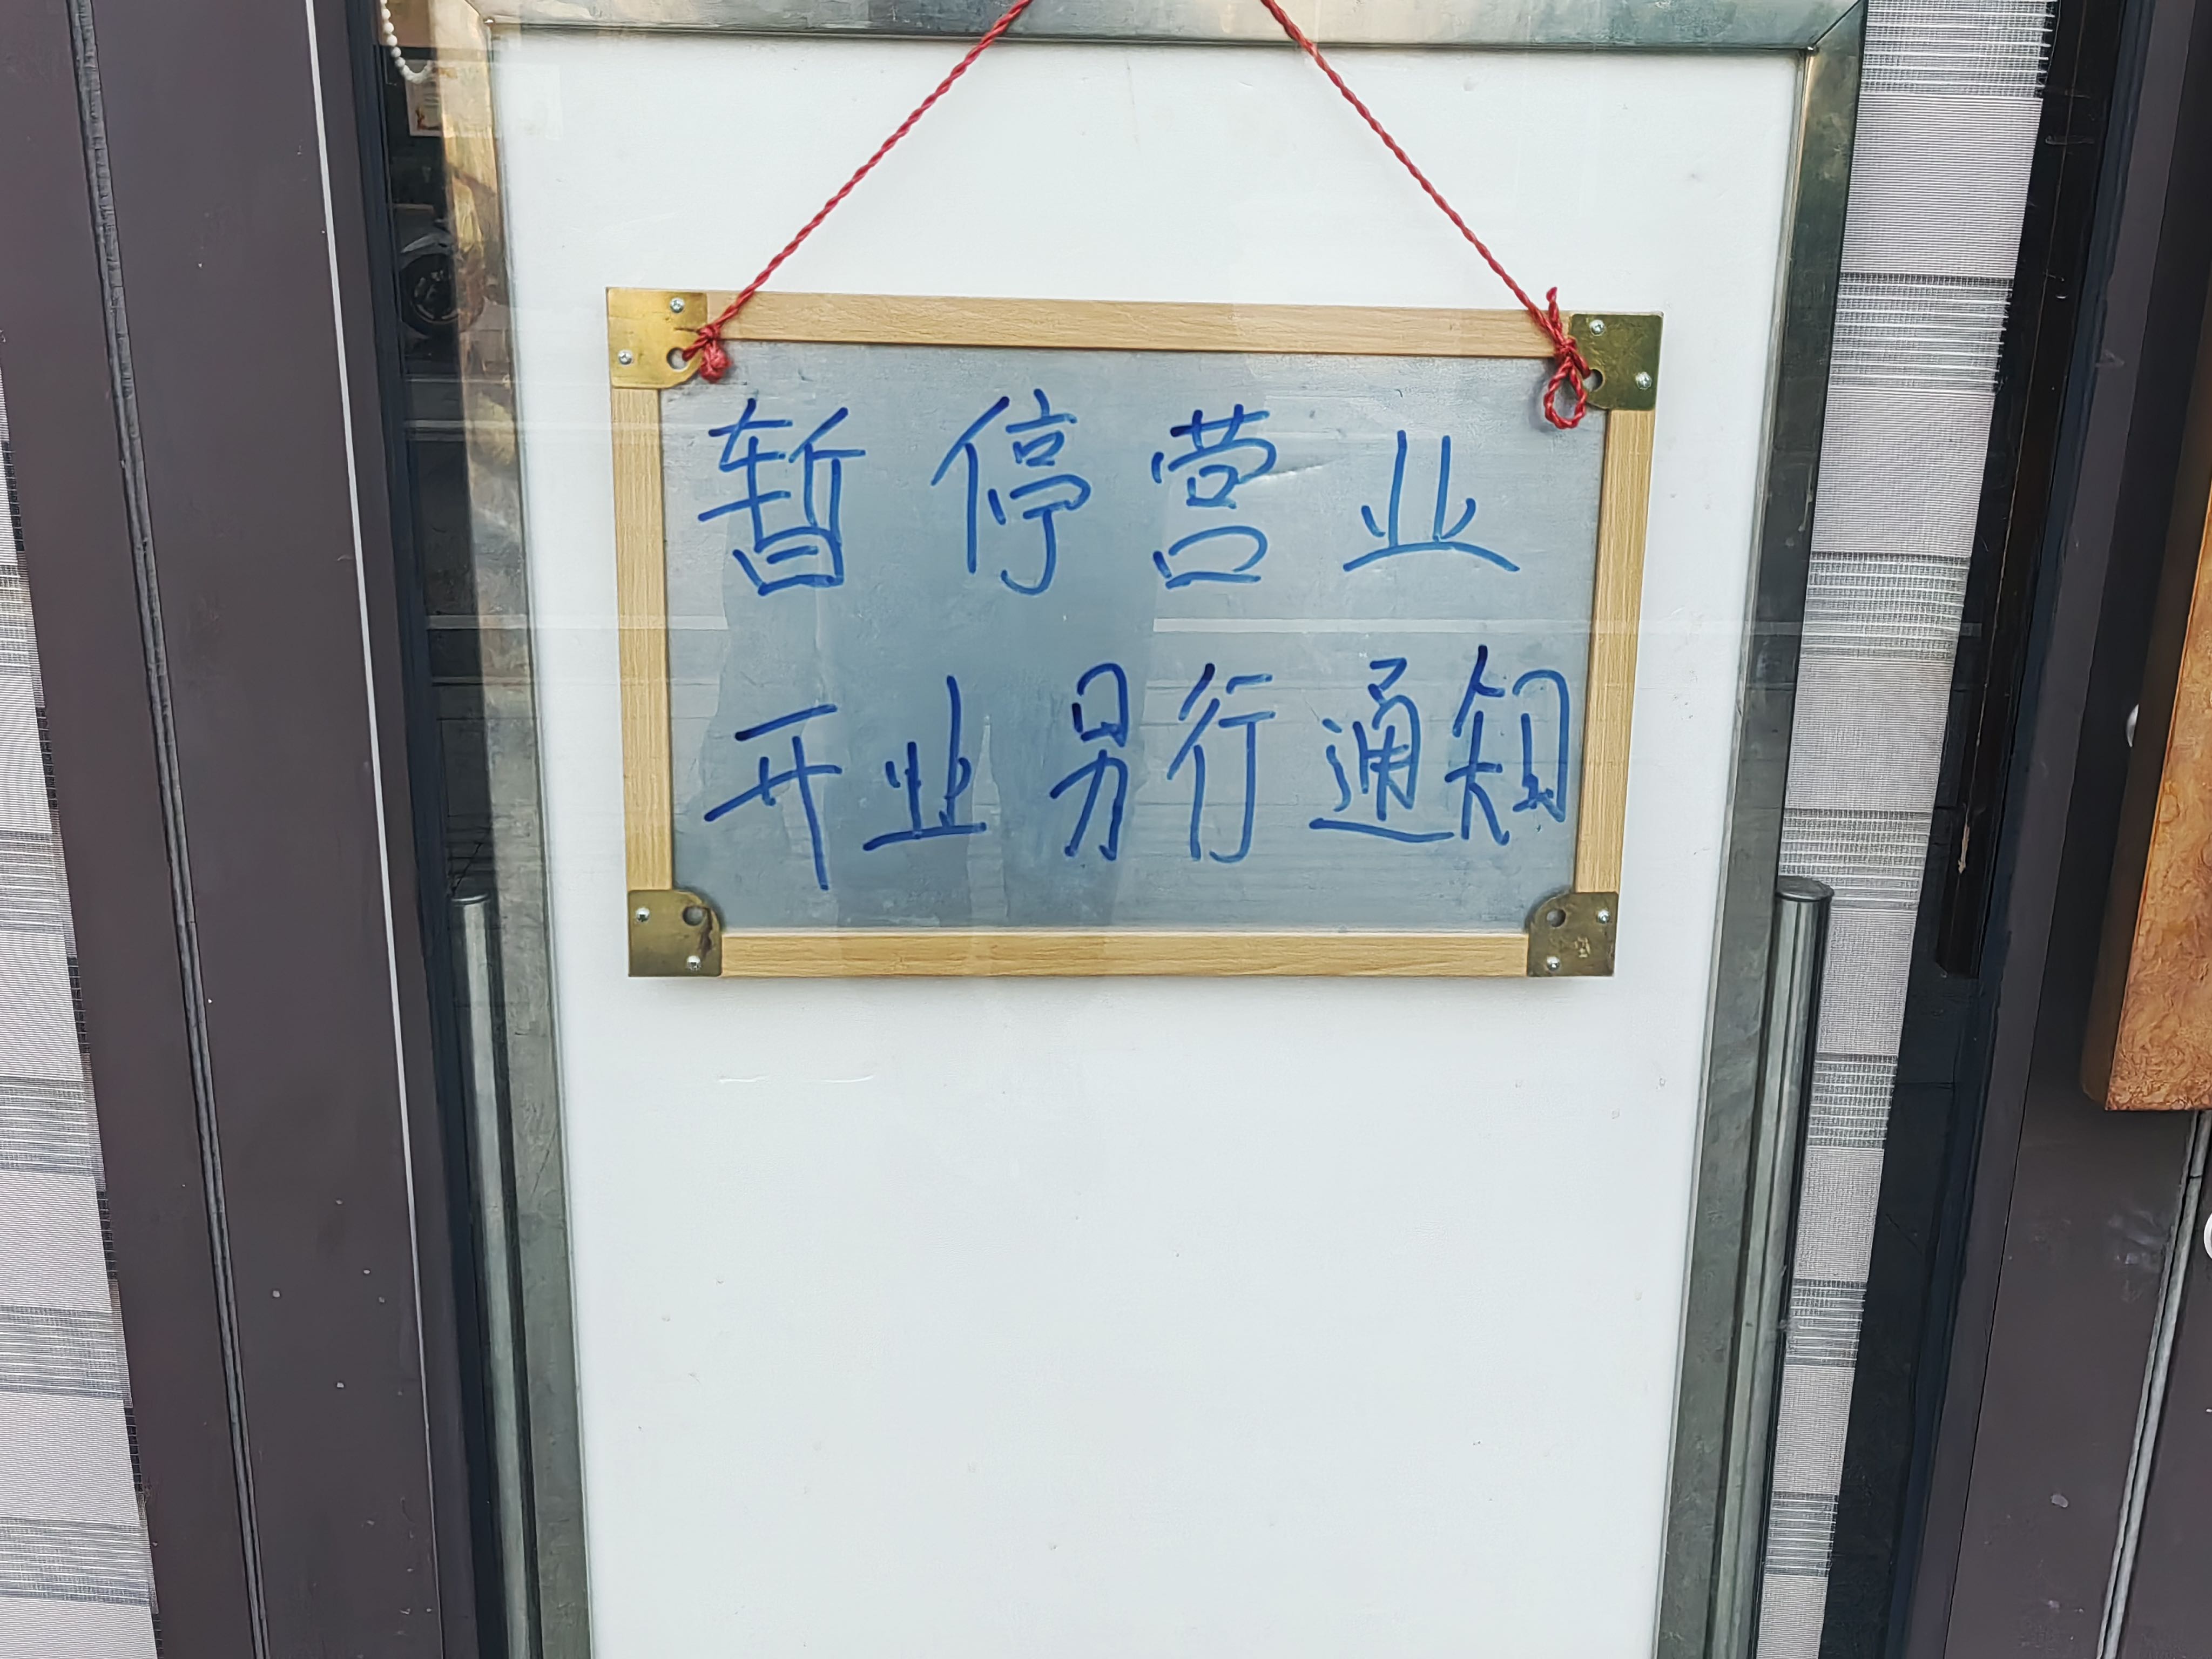 暂停营业
开业另行通知